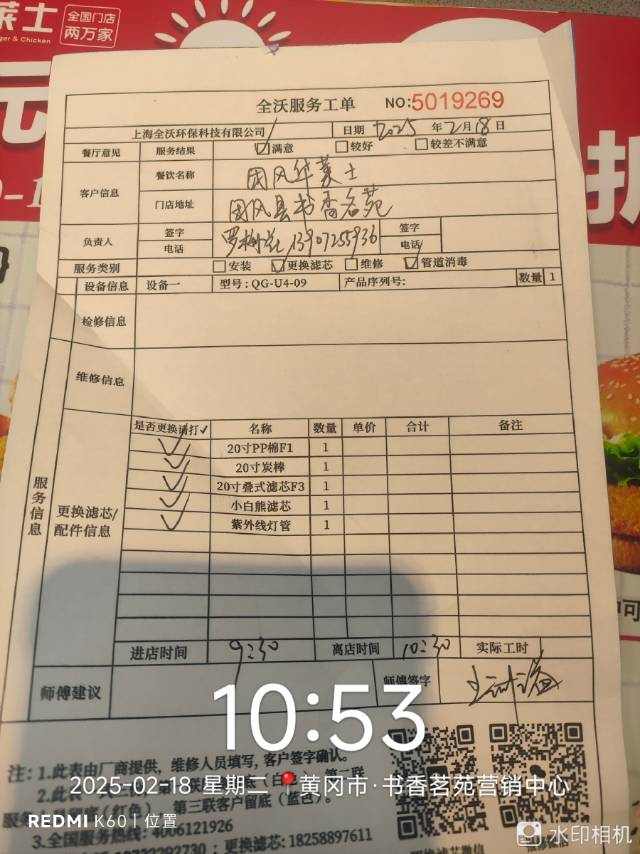 莱士
全国门店
两万家
全沃服务工单 NO:5019269
上海全沃环保科技有限公司 日期 2025 年 2 月 18 日
餐厅意见 服务结果 ☑满意 □较好 □较差不满意
客户信息 餐饮名称 团风华莱士
门店地址 团风县书香名苑
负责人 签字 签字
电话 13907255936 电话
服务类别 □安装 ☑更换滤芯 □维修 ☑管道消毒
设备信息 设备一 型号:QG-U4-09 产品序列号: 数量 1
检修信息
维修信息
服务信息
更换滤芯/配件信息
是否更换请打✓ 名称 数量 单价 合计 备注
✓ 20寸PP棉F1 1
✓ 20寸炭棒 1
✓ 20寸叠式滤芯F3 1
✓ 小白熊滤芯 1
✓ 紫外线灯管 1
进店时间 9:30 离店时间 10:30 实际工时
师傅建议 师傅签字
10:53
注: 1.此表由厂商提供，维修人员填写，客户签字确认。
2025-02-18 星期二 黄冈市·书香茗苑营销中心
第三联客户留底（蓝色）。
3.全国服务热线: 4006121926
更换滤芯: 18258897611
REDMI K60 | 位置
水印相机